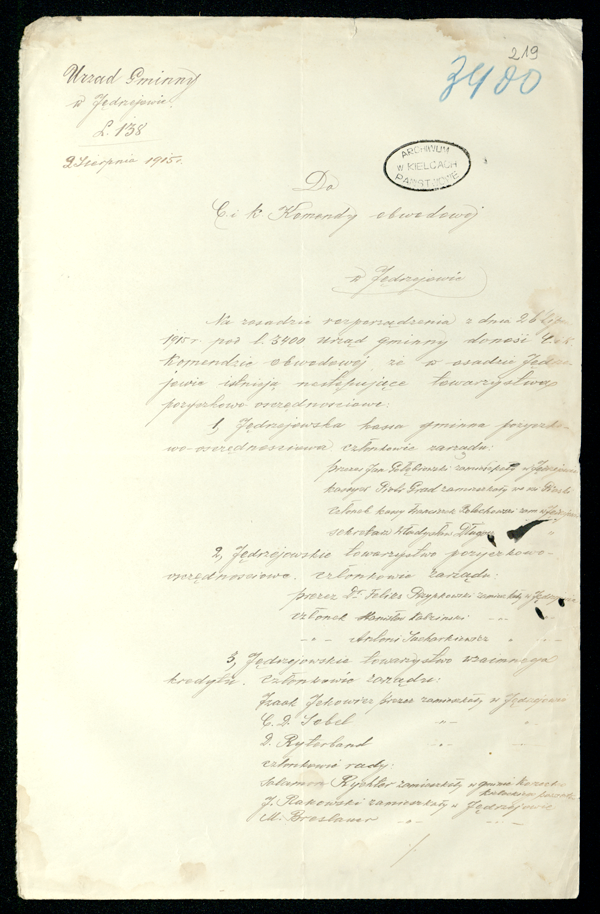 219
3400
Urząd Gminny
w Jędrzejowie.
L. 138
2 Sierpnia 1915 r.
ARCHIWUM
w KIELCACH
PAŃSTWOWE
Do
C i k Komendy obwodowej
w Jędrzejowie
Na zasadzie rozporządzenia z dnia 26 Lip
1915 r pod L. 3400 urząd gminny donosi C i k
Komendzie obwodowej że w osadzie Jędrze
jowie istnieją następujące towarzystwa
pożyczkowo oszczędnościowe:
1, Jędrzejowska kasa gminna pożyczko
wo-oszczędnościowa członkowie zarządu:
prezes Jan Gołębowski zamieszkały w Jędrzejowie
kasyer Piotr Grad zamieszkały we wsi
członek kasy zam w
sekretarz Władysław Długosz "
2, Jędrzejowskie towarzystwo pożyczkowo-
oszczędnościowe. członkowie zarządu:
prezes Dr. Feliks Przypkowski zamieszkały w Jędrzejowie
członek Stanisław
-"- Antoni "
3, Jędrzejowskie towarzystwo wzaimnego
kredytu. członkowie zarządu:
Izaak Jekowicz prezes zamieszkały w Jędrzejowie
C. D. Sobel -"- -"-
D. Ryterband -"- -"-
członkowie rady:
Salamon Rychter zamieszkały w gminie
J. Rakowski zamieszkały w Jędrzejowie
M. Breslauer -"- -"-